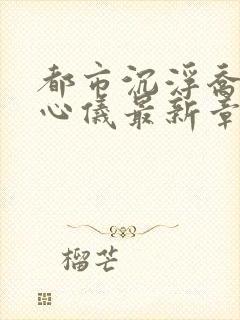 都市沉浮乔
心仪最新章
榴芒